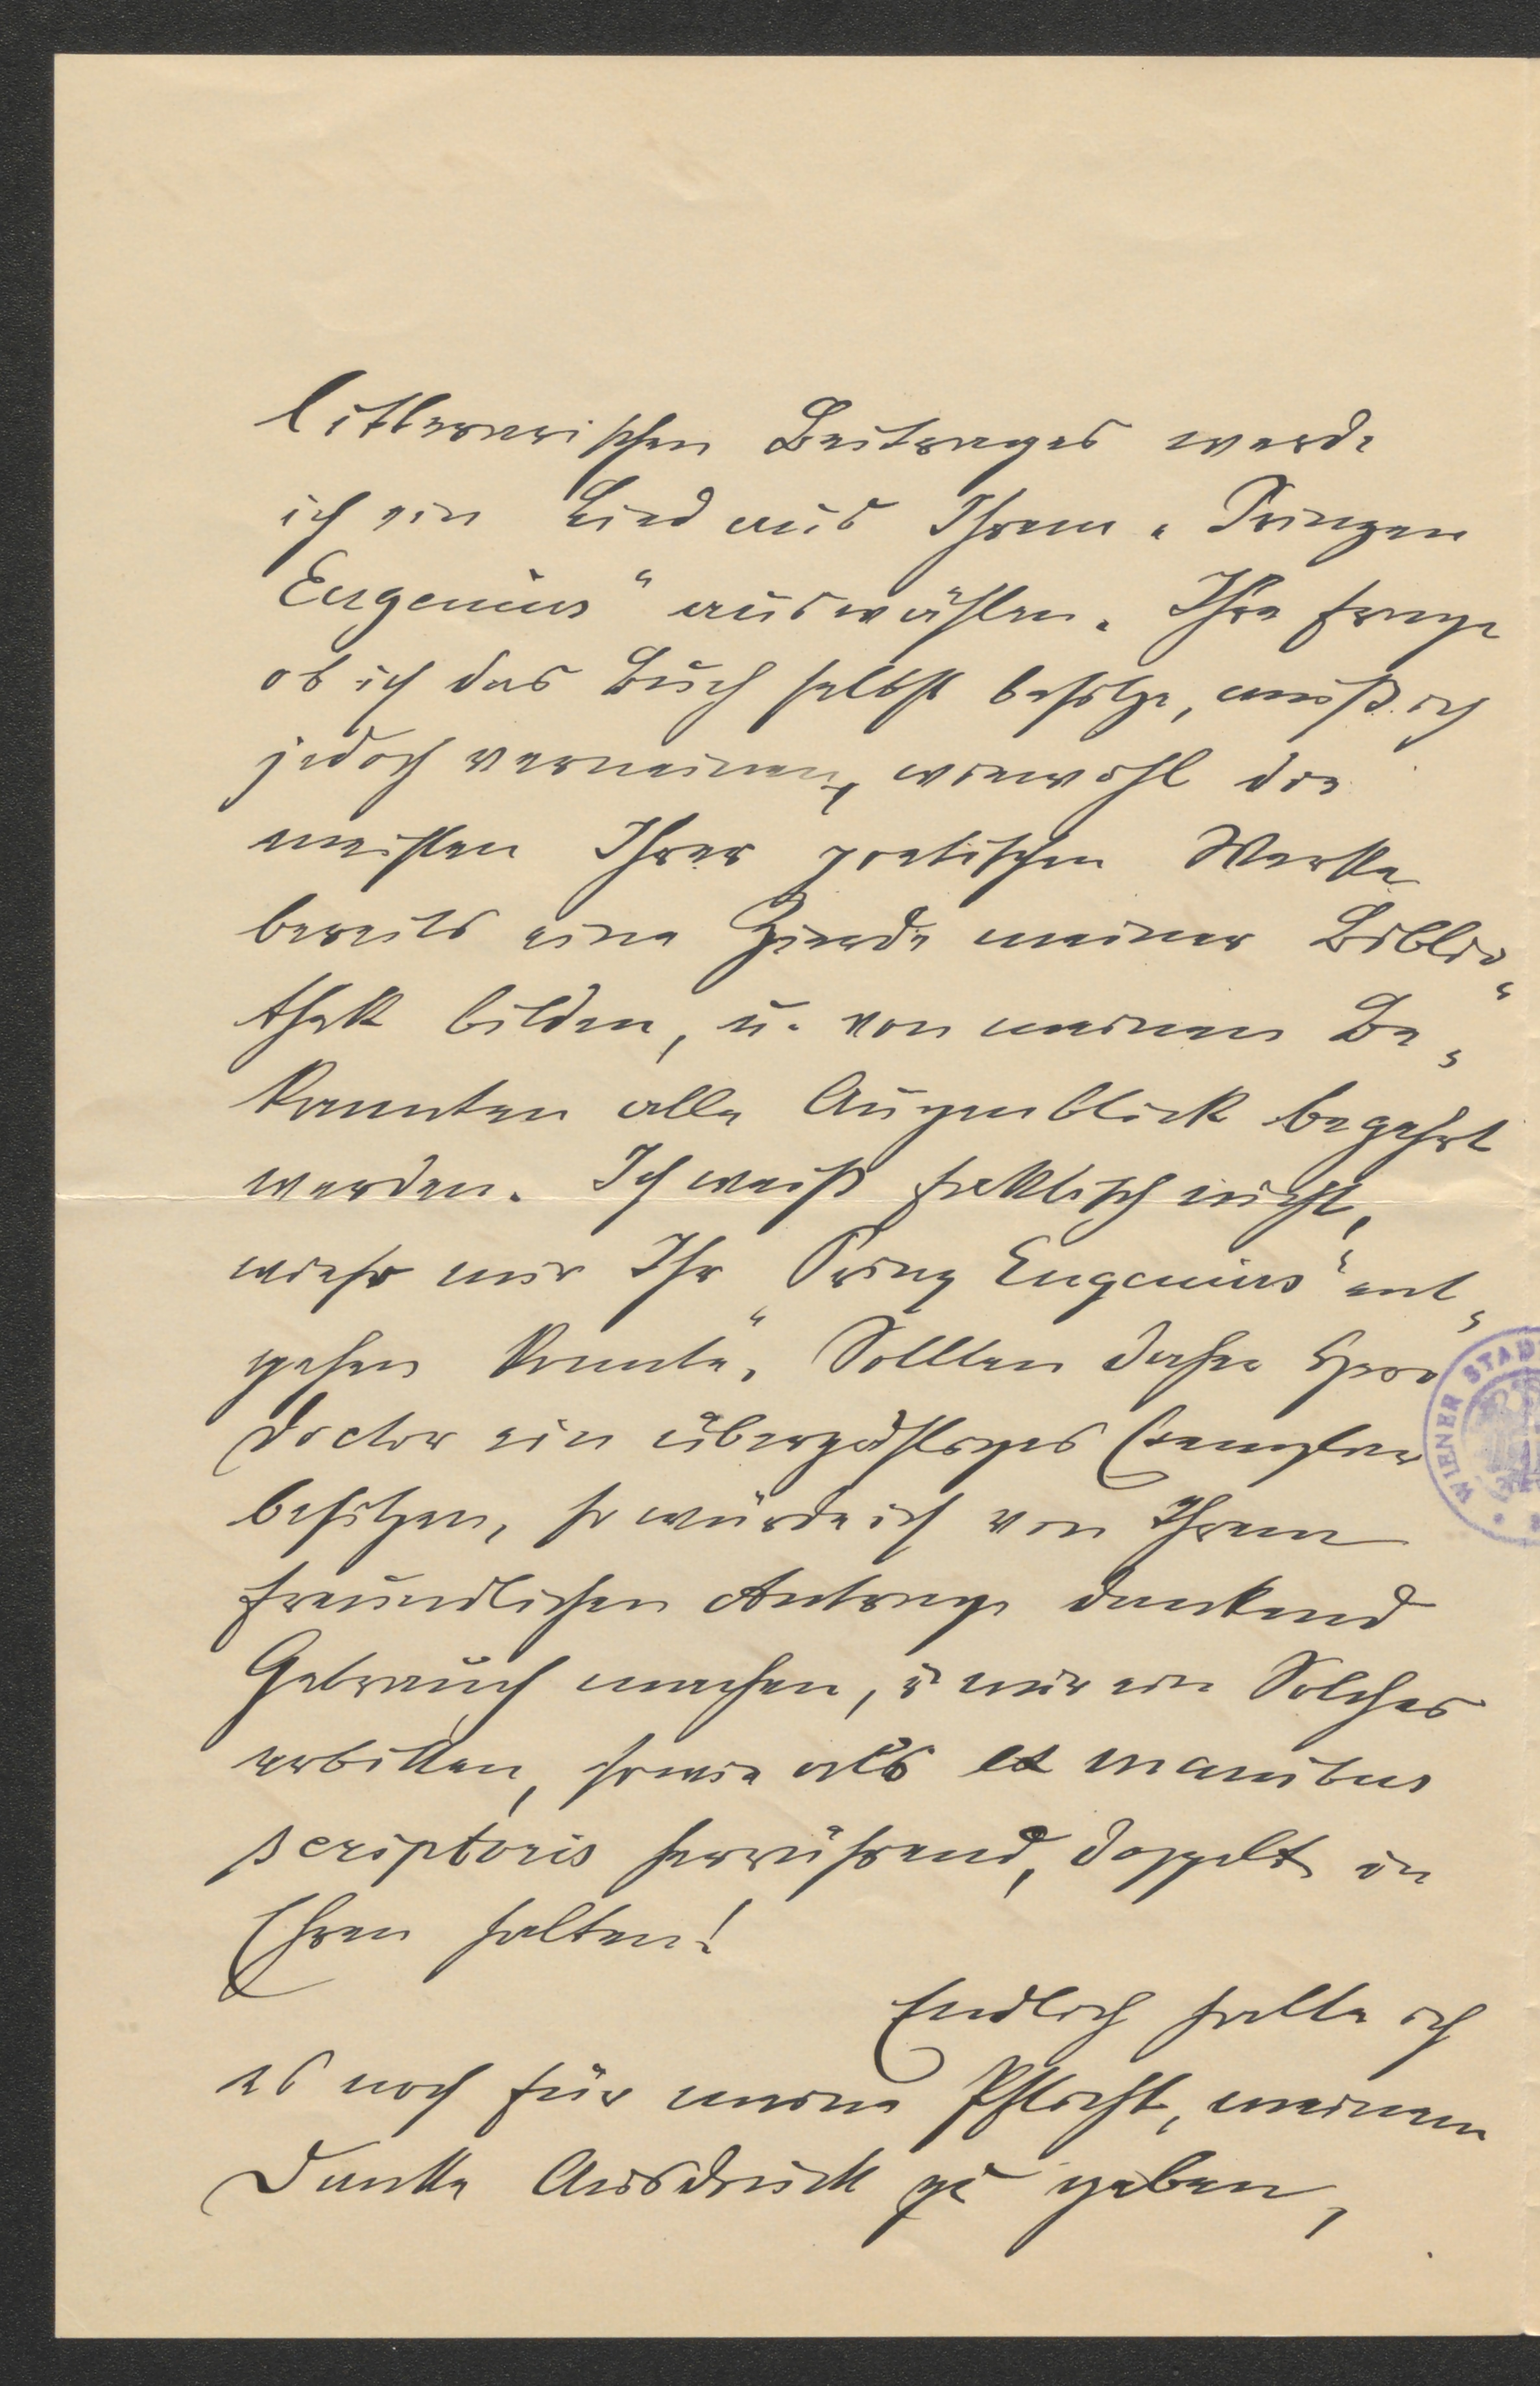 litterarischen Beitrages werde
ich ein Lied aus Ihrem „Prinzen
Eugenius“ auswählen. Ihre Frage
ob ich das Buch selbst besitze, muß ich
jedoch verneinen, wiewohl die
meisten Ihrer poetischen Werke
bereits eine Zierde meiner Biblio„
thek bilden, u. von meinen Be„
kannten alle Augenblick begehrt
werden. Ich weiß faktisch nicht,
wieso mir Ihr „Prinz Eugenius“ ent„
gehen konnte. Sollten daher Herr
Doctor ein überzähliges Exemplar
besitzen, so würde ich von Ihrem
freundlichen Antrage dankend
Gebrauch machen, u mir ein Solches
erbitten, sowie als ex manibus
scriptoris herrührend, doppelt in
Ehren halten!
Endlich halte ich
es noch für meine Pflicht, meinem
Danke Ausdruck zu geben,
WIENER STAD